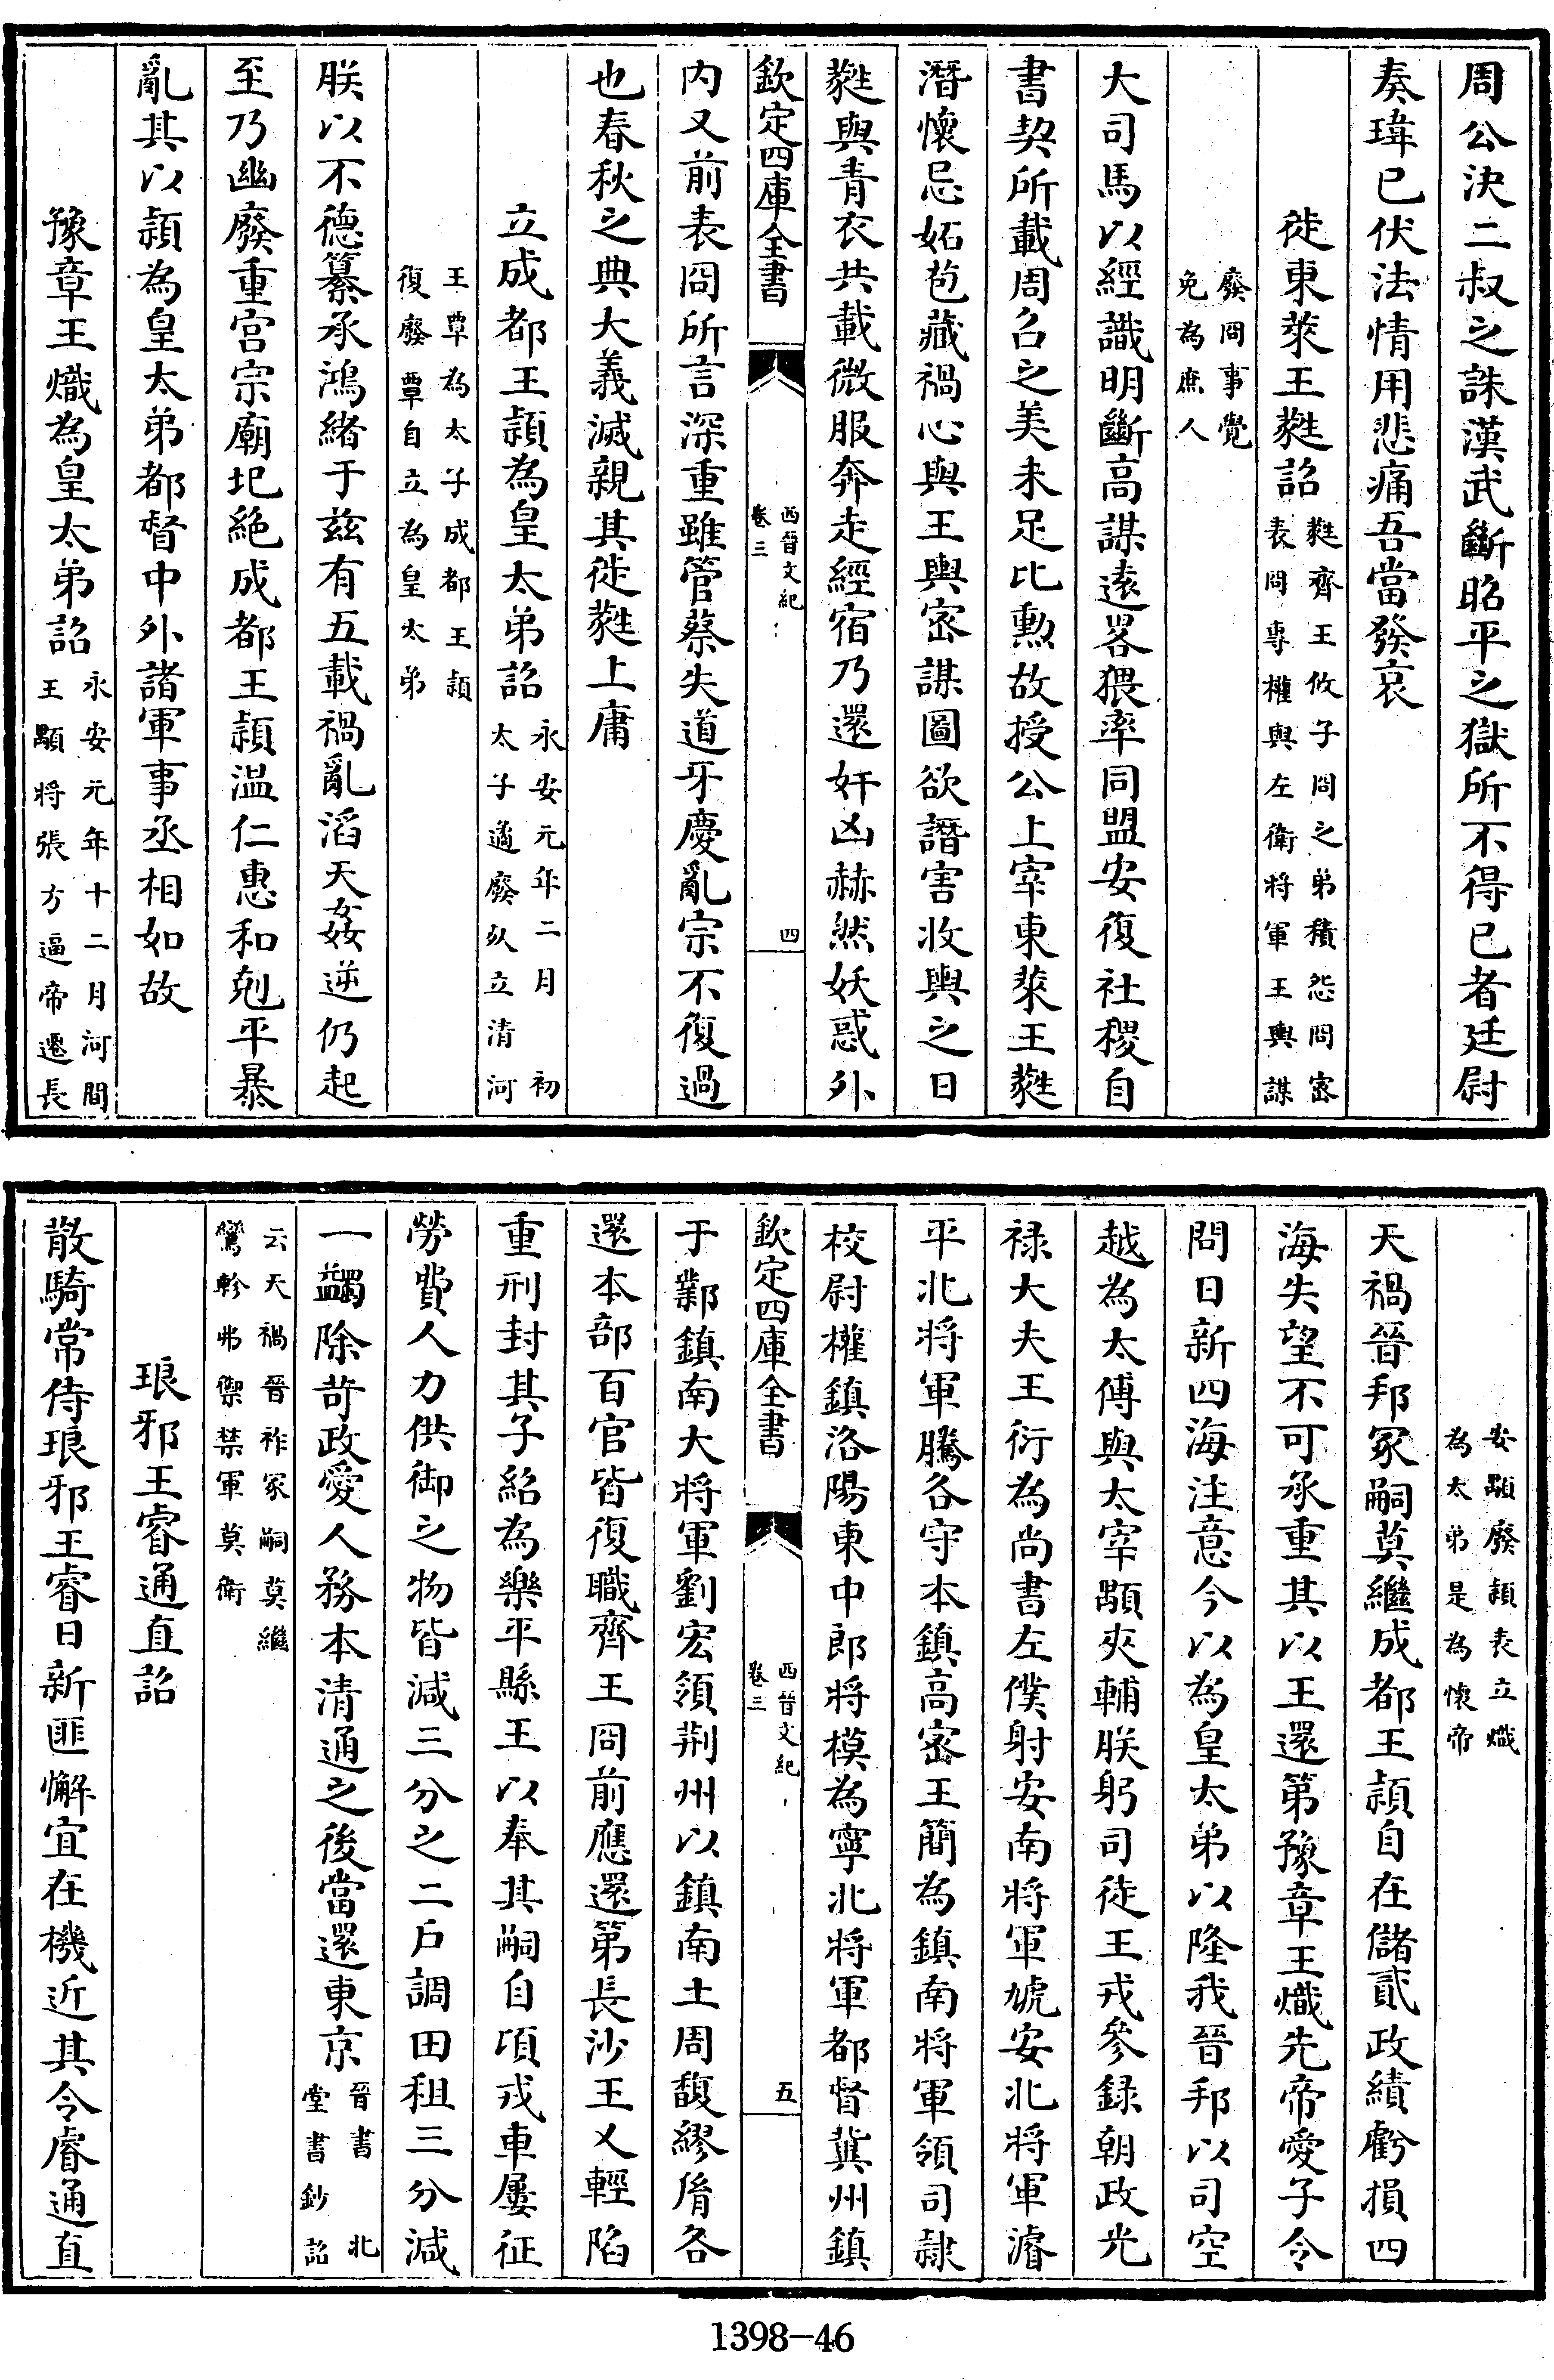 周公決二叔之誅漢武斷昭平之獄所不得已者廷尉
奏瑋已伏法情用悲痛吾當發哀
徙東萊王蕤詔蕤齊王攸子冏之弟積怨冏密
表冏專權與左衛將軍王輿謀
廢冏事覺
免為庶人
大司馬以經識明斷高謀遠畧猥率同盟安復社稷自
書契所載周召之美未足比勲故授公上宰東萊王蕤
潛懷忌妬苞藏禍心與王輿宻謀圖欲譖害收輿之日
蕤與青衣共載微服奔走經宿乃還奸凶赫然妖惑外
欽定四庫全書
西晉文紀
卷三
四
内又前表冏所言深重雖管蔡失道牙慶亂宗不復過
也春秋之典大義滅親其徙蕤上庸
立成都王頴為皇太弟詔永安元年二月初
太子遹廢以立清河
王覃為太子成都王頴
復廢覃自立為皇太弟
朕以不德纂承鴻緒于兹有五載禍亂滔天姦逆仍起
至乃幽廢重宫宗廟圯絶成都王頴温仁惠和剋平暴
亂其以頴為皇太弟都督中外諸軍事丞相如故
豫章王熾為皇太弟詔永安元年十二月河間
王顒將張方逼帝遷長
安顒廢頴表立熾
為太弟是為懷帝
天禍晉邦冢嗣莫繼成都王頴自在儲貳政績虧損四
海失望不可承重其以王還第豫章王熾先帝愛子令
問日新四海注意今以為皇太弟以隆我晉邦以司空
越為太傅與太宰顒夾輔朕躬司徒王戎參録朝政光
禄大夫王衍為尚書左僕射安南將軍虓安北將軍濬
平北將軍騰各守本鎮高宻王簡為鎮南將軍領司隷
校尉權鎮洛陽東中郎將模為寧北將軍都督冀州鎮
欽定四庫全書
西晉文紀
卷三
五
于鄴鎮南大將軍劉宏領荆州以鎮南土周馥繆脩各
還本部百官皆復職齊王冏前應還第長沙王乂輕陷
重刑封其子紹為樂平縣王以奉其嗣自頃戎車屢征
勞費人力供御之物皆減三分之二戶調田租三分減
一蠲除苛政愛人務本清通之後當還東京晉書北
堂書鈔詔
云天禍晉祚冢嗣莫繼
鸞軫弗禦禁軍莫衛
琅邪王睿通直詔
散騎常侍琅邪王睿日新匪懈宜在機近其令睿通直
1398-46